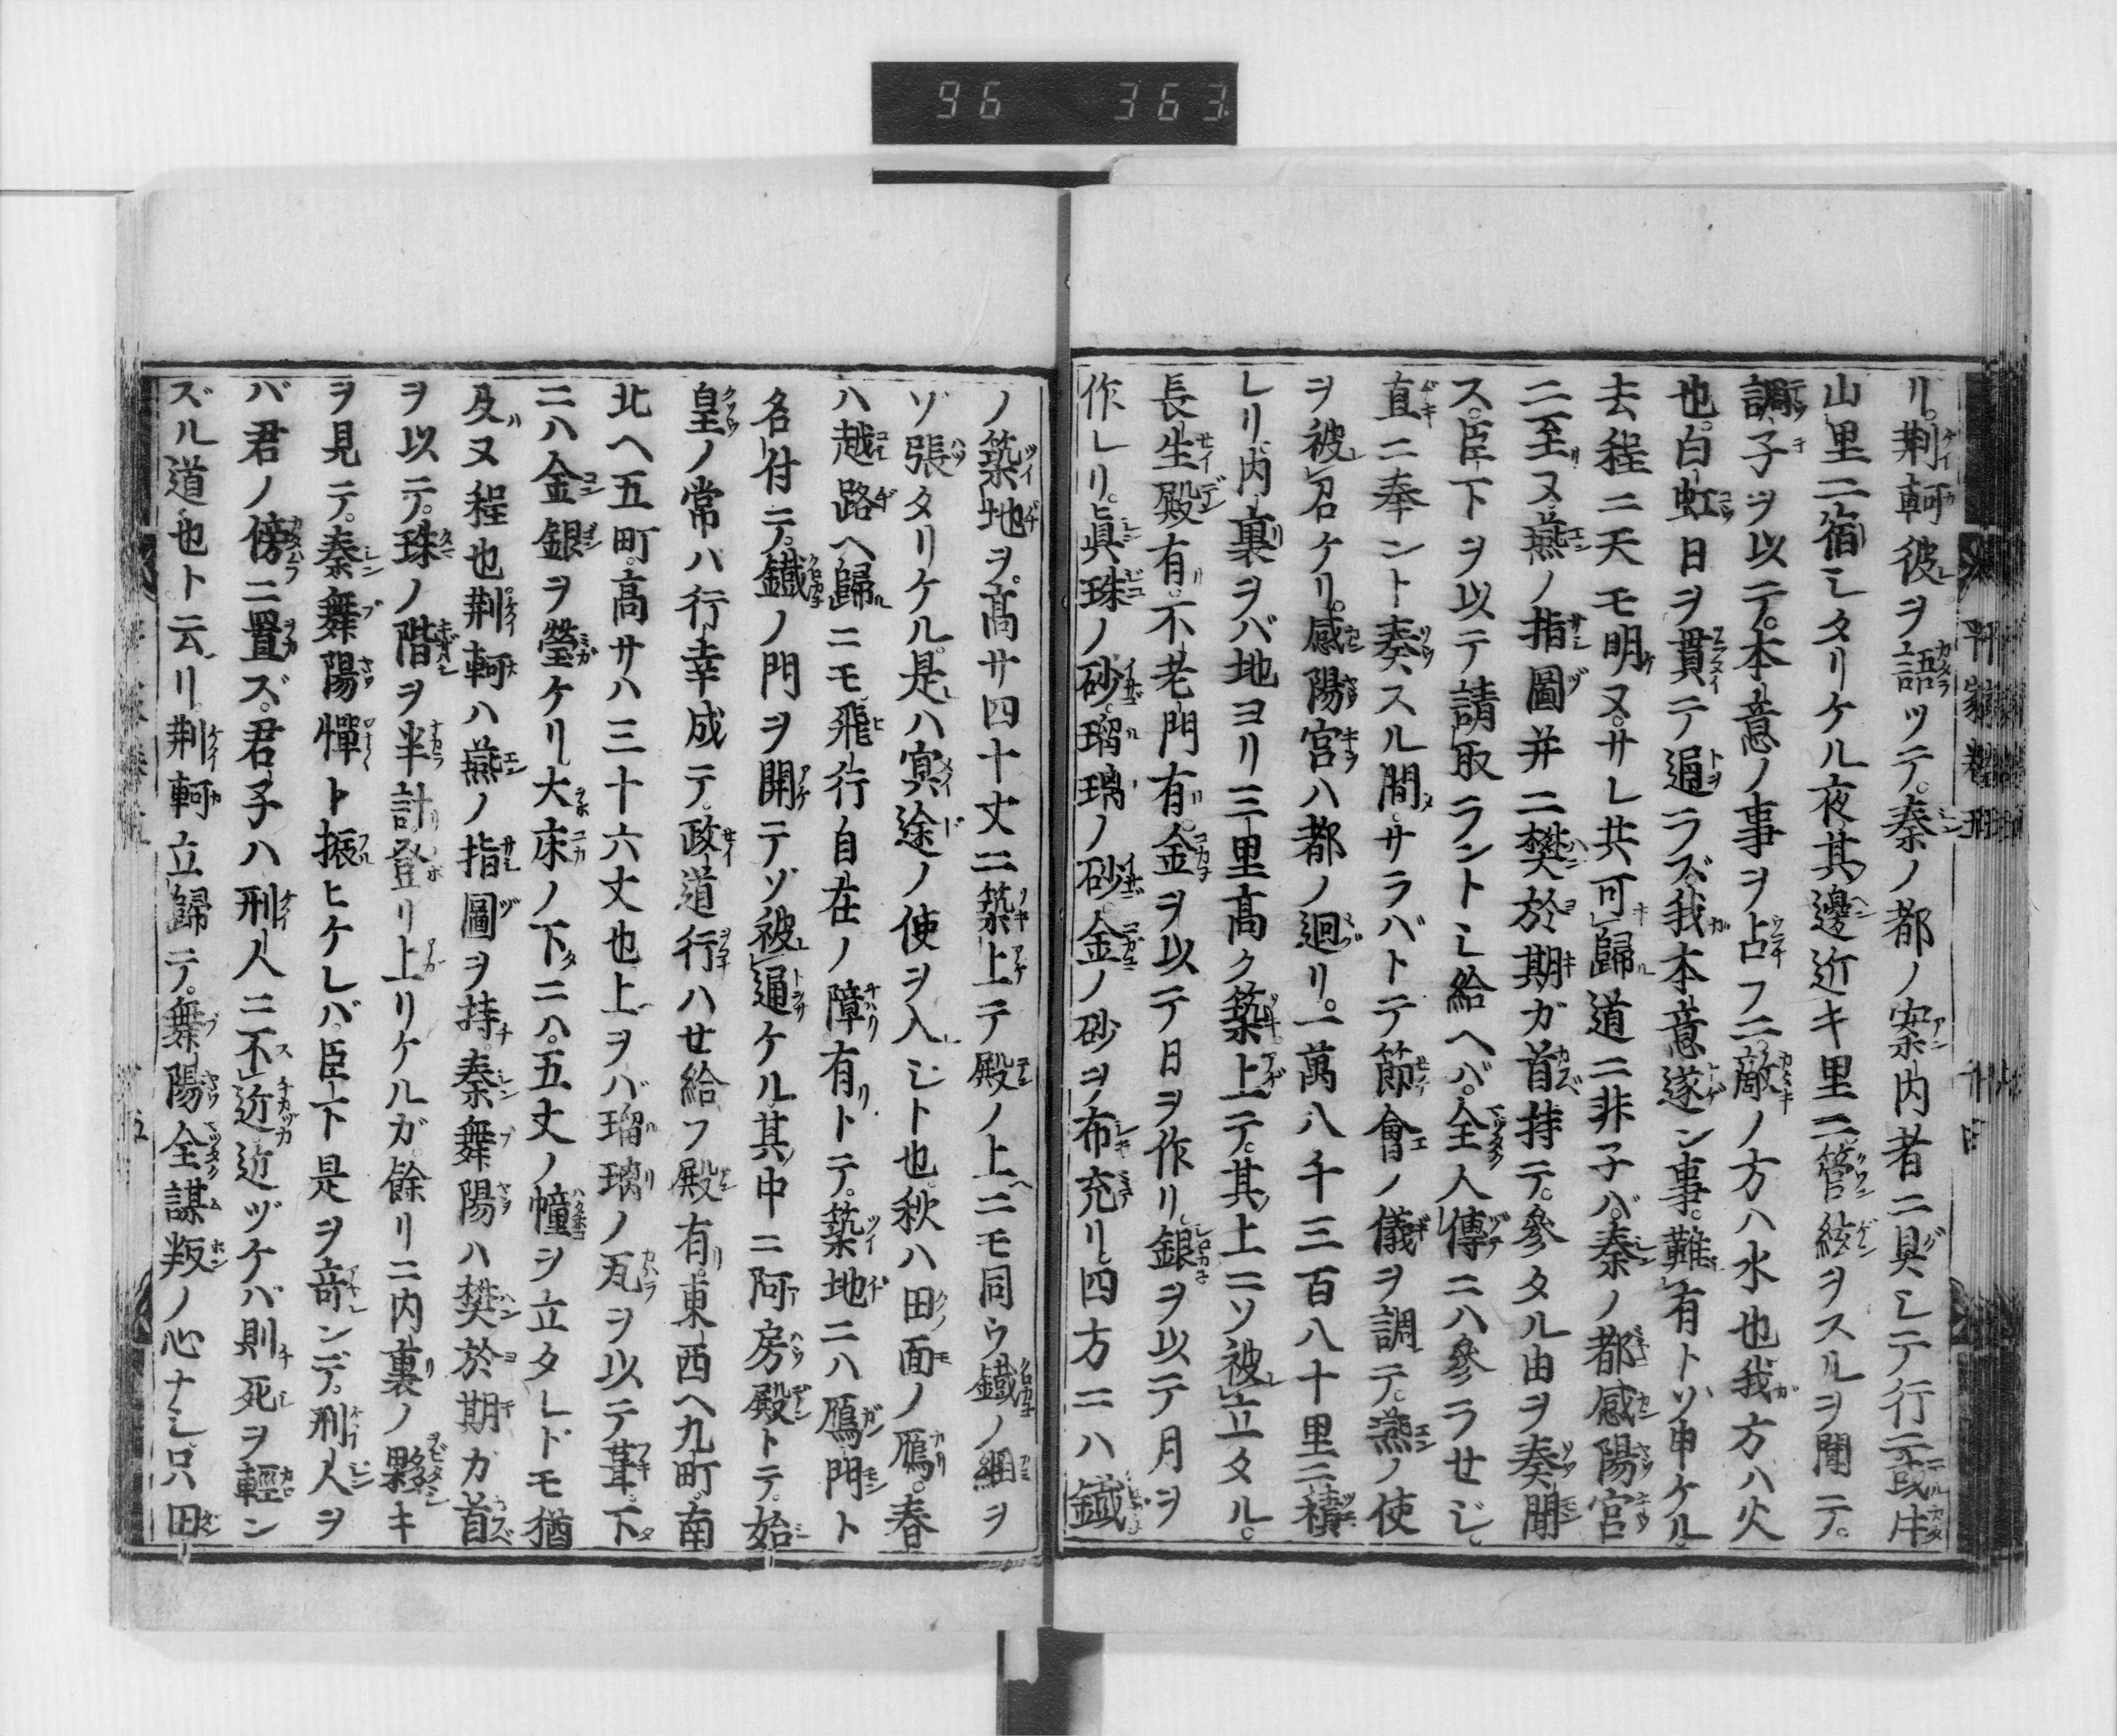 96 363
リ。荊軻彼ヲ語ツテ。秦ノ都ノ案内者ニ具シテ行ニ或片
山里ニ宿シタリケル夜其邊近キ里ニ管絃ヲスルヲ聞テ。
調子ヲ以テ。本意ノ事ヲ占フニ。敵ノ方ハ水也我方ハ火
也。白虹日ヲ貫テ通ラズ。我本意遂ン事。難有トソ申ケル。
去程ニ天モ明ヌ。サレ共可歸道ニ非子バ。秦ノ都咸陽宮
ニ至ヌ。燕ノ指圖并ニ樊於期ガ首持テ。參タル由ヲ奏聞
ス。臣下ヲ以テ請取ラントシ給ヘバ。全人傳ニハ參ラセジ。
直ニ奉ント奏スル間。サラバトテ節會ノ儀ヲ調テ。燕ノ使
ヲ被召ケリ。咸陽宮ハ都ノ廻リ。一萬八千三百八十里ニ積
レリ。内裏ヲバ地ヨリ三里高ク築上テ。其上ニソ被立タル。
長生殿有。不老門有。金ヲ以テ日ヲ作リ。銀ヲ以テ月ヲ
作レリ。眞珠ノ砂。瑠璃ノ砂。金ノ砂ヲ布充リ。四方ニハ鐵
ノ築地ヲ。高サ四十丈ニ築上テ殿ノ上ニモ同ウ鐵ノ網ヲ
ゾ張タリケル。是ハ冥途ノ使ヲ入レジト也。秋ハ田面ノ鴈。春
ハ越路ヘ歸ルニモ飛行自在ノ障有トテ。築地ニハ鴈門ト
名付テ。鐵ノ門ヲ開テソ被通ケル其中ニ阿房殿トテ。始
皇ノ常ハ行幸成テ。政道行ハセ給フ殿有。東西ヘ九町。南
北ヘ五町。高サハ三十六丈也上ヲバ瑠璃ノ瓦ヲ以テ葺。下
ニハ金銀ヲ瑩ケリ。大床ノ下ニハ。五丈ノ幢ヲ立タレドモ猶
及ヌ程也。荊軻ハ燕ノ指圖ヲ持。秦舞陽ハ樊於期カ首
ヲ以テ。珠ノ階ヲ半計登リ上リケルガ。餘リニ内裏ノ夥キ
ヲ見テ。秦舞陽憚ト振ヒケレバ。臣下是ヲ奇ンデ。刑人ヲ
バ君ノ傍ニ置ズ。君子ハ刑人ニ不近近ヅケバ則死ヲ輕ン
ズル道也ト云リ。荊軻立歸テ。舞陽全謀叛ノ心ナシ。只田